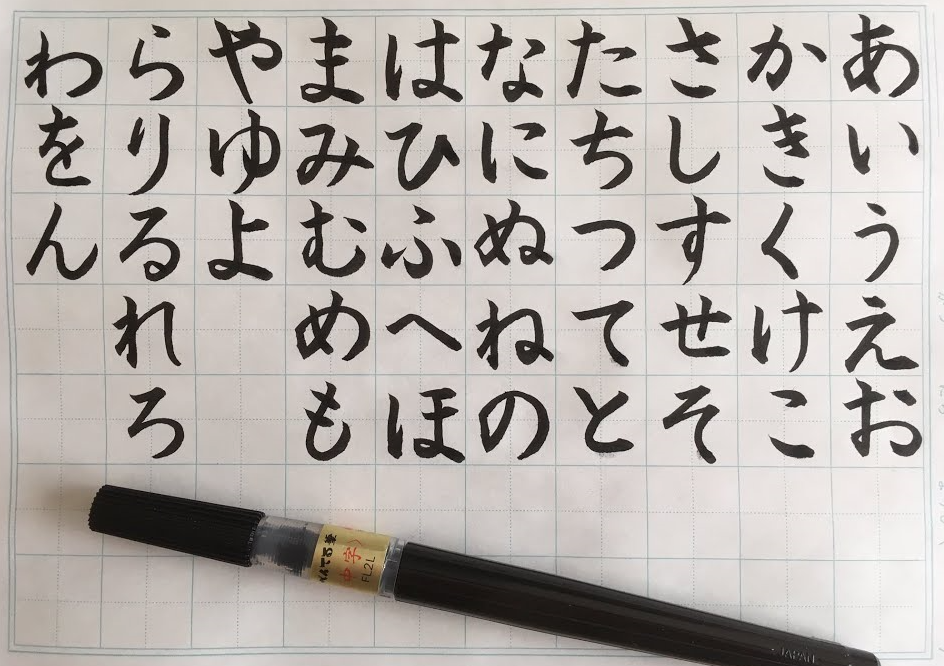 あいうえお
かきくけこ
さしすせそ
たちつてと
なにぬねの
はひふへほ
まみむめも
やゆよ
らりるれろ
わをん
ぺんてる筆
中字
FL2L
JAPAN